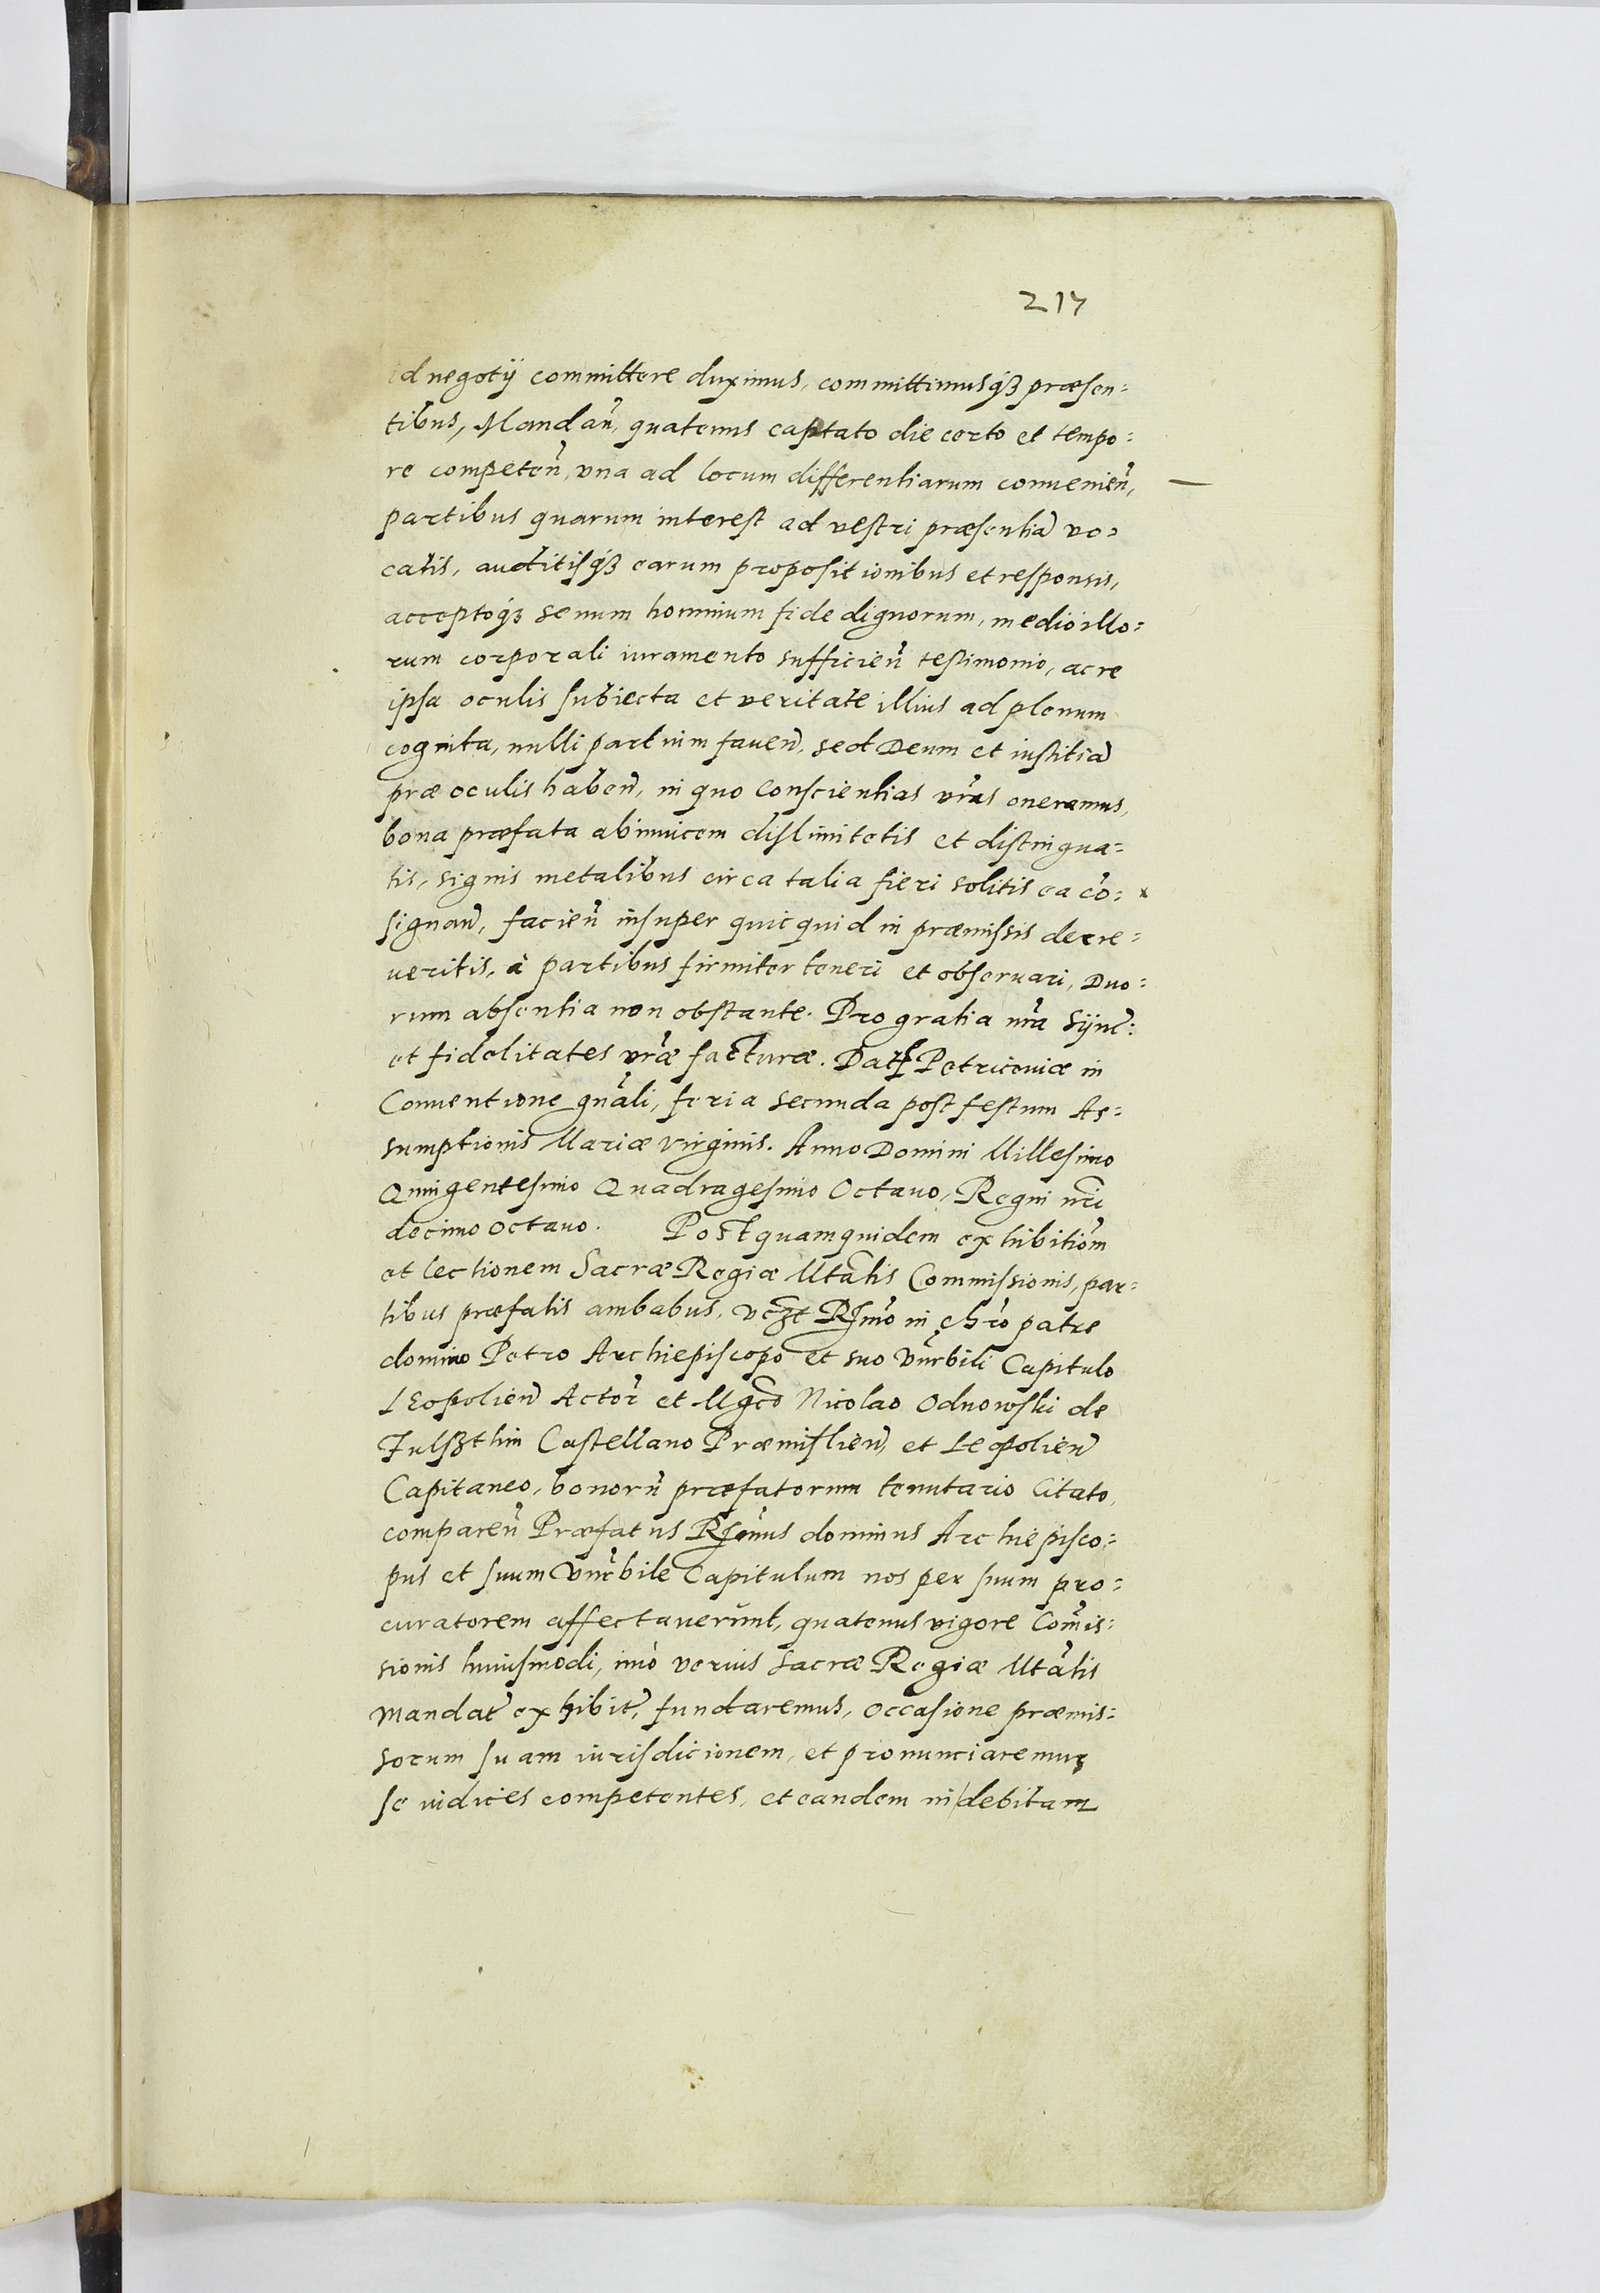 217
id negotÿ committere duximus, committimusq3 præsen=
tibus, Mandañ, quatenus captato die certo et tempo=
re competeñ, vna ad locum differentiarum conuenieñ,
partibus quarum interest ad vestri præsentiã vo=
catis, auditisq3 earum propositionibus et responsis,
acceptoq3 senum hominum fide dignorum, medio illo=
rum corporali iuramento sufficieñ testimonio, ac re
ipsa oculis subiecta et veritate illius ad plenum
cognita, nulli partium faueñ, sed Deum et iustitiã
præ oculis habeñ, in quo conscientias vr̃as oneramus,
bona præfata abinuicem dislimitetis et distingua=
tis, signis metalibus circa talia fieri solitis ea cõ=
signañ, facieñ insuper quicquid in præmissis decre=
ueritis, à partibus firmiter teneri et obseruari, Duo=
rum absentia non obstante. Pro gratia nr̃a Sÿnč:
et fidelitates vr̃æ facturæ. Dať Petricouiæ in
Conuentione gñali, feria secunda post festum As=
sumptionis Mariæ virginis. Anno Domini Millesimo
Quingentesimo Quadragesimo Octauo, Regni nr̃i
decimo octauo. Postquamquidem exhibitiõm
et lectionem Sacræ Regiæ Mtãtis Commissionis, par=
tibus præfatis ambabus, vcꝫt Rſmõ in chr̃o patre
domino Petro Archiepiscopo et suo Vñrbili Capitulo
Leopolieñ Actor̃ et Mgcõ Nicolao Odnowski de
Fulsthin Castellano Præmislieñ, et Leopolieñ
Capitaneo, bonorũ præfatorum tenutario Citato,
compareñ Præfatus Rſmus dominus Archiepisco=
pus et suum Vñrbile Capitulum nos per suum pro=
curatorem affectauerunt, quatenus vigore Com̃is=
sionis huiusmodi, imò verius Sacræ Regiæ Mtãtis
Mandat̃ exhibit̃, fundaremus, occasione præmis=
sorum suam iurisdicionem, et pronunciaremus
se iudices competentes, et eandem in debitam